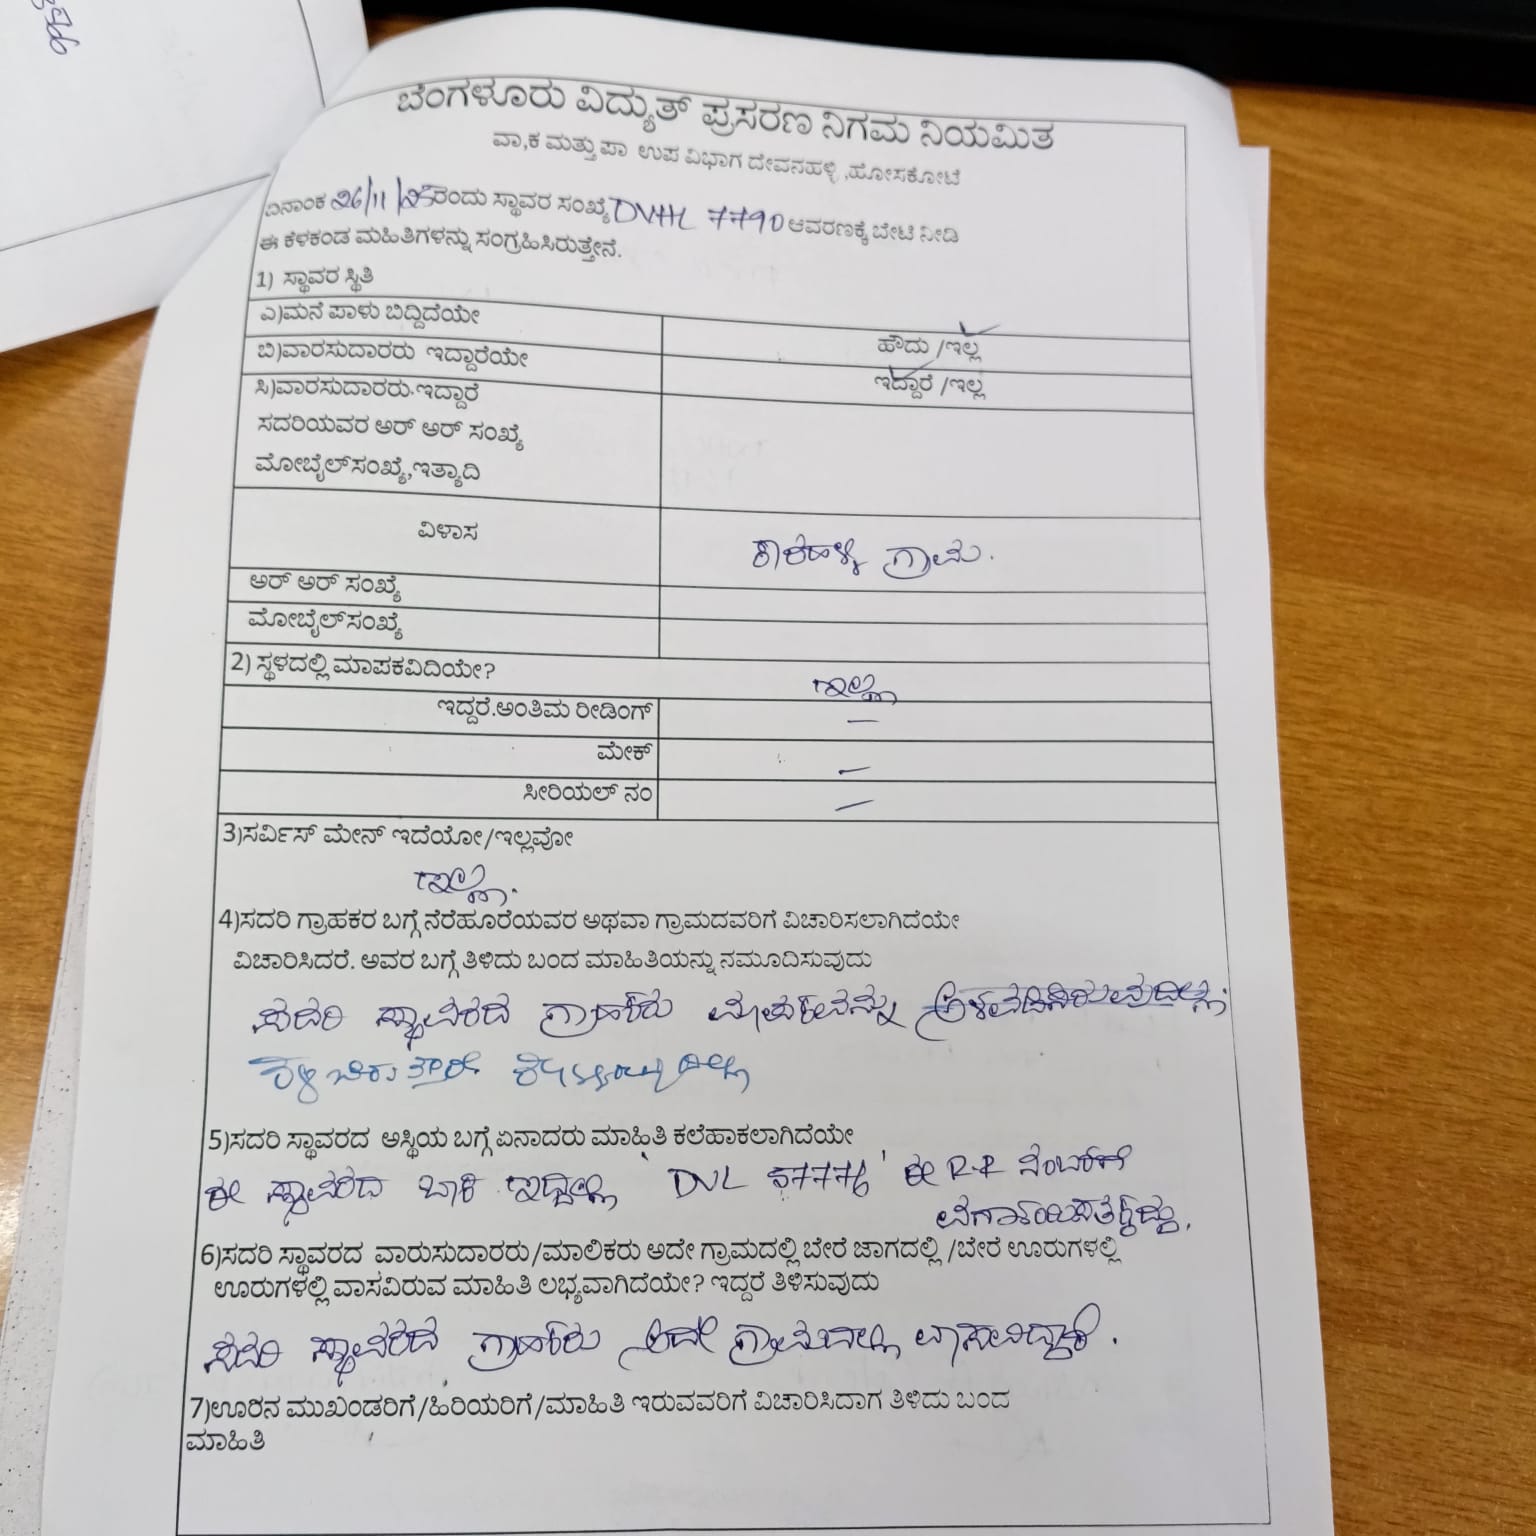 ಬೆಂಗಳೂರು ವಿದ್ಯುತ್ ಪ್ರಸರಣ ನಿಗಮ ನಿಯಮಿತ
ವಾ,ಕ ಮತ್ತು ಪಾ ಉಪ ವಿಭಾಗ ದೇವನಹಳ್ಳಿ ,ಹೋಸಕೋಟೆ
ದಿನಾಂಕ 26/11/25ರಂದು ಸ್ಥಾವರ ಸಂಖ್ಯೆ DVHL 7790 ಆವರಣಕ್ಕೆ ಬೇಟಿ ನೀಡಿ
ಈ ಕೆಳಕಂಡ ಮಹಿತಿಗಳನ್ನು ಸಂಗ್ರಹಿಸಿರುತ್ತೇನೆ.
1) ಸ್ಥಾವರ ಸ್ಥಿತಿ
ಎ)ಮನೆ ಪಾಳು ಬಿದ್ದಿದೆಯೇ ಹೌದು /ಇಲ್ಲ
ಬಿ)ವಾರಸುದಾರರು ಇದ್ದಾರೆಯೇ ಇದ್ದಾರೆ /ಇಲ್ಲ
ಸಿ)ವಾರಸುದಾರರು.ಇದ್ದಾರೆ
ಸದರಿಯವರ ಅರ್ ಅರ್ ಸಂಖ್ಯೆ
ಮೋಬೈಲ್‌ಸಂಖ್ಯೆ,ಇತ್ಯಾದಿ
ವಿಳಾಸ ಕಾರಹಳ್ಳಿ ಗ್ರಾಮ.
ಅರ್ ಅರ್ ಸಂಖ್ಯೆ
ಮೋಬೈಲ್‌ಸಂಖ್ಯೆ
2) ಸ್ಥಳದಲ್ಲಿ ಮಾಪಕವಿದಿಯೇ? ಇಲ್ಲ
ಇದ್ದರೆ.ಅಂತಿಮ ರೀಡಿಂಗ್ —
ಮೇಕ್ —
ಸೀರಿಯಲ್ ನಂ —
3)ಸರ್ವಿಸ್ ಮೇನ್ ಇದೆಯೋ/ಇಲ್ಲವೋ
ಇಲ್ಲ.
4)ಸದರಿ ಗ್ರಾಹಕರ ಬಗ್ಗೆ ನೆರೆಹೂರೆಯವರ ಅಥವಾ ಗ್ರಾಮದವರಿಗೆ ವಿಚಾರಿಸಲಾಗಿದೆಯೇ
ವಿಚಾರಿಸಿದರೆ. ಅವರ ಬಗ್ಗೆ ತಿಳಿದು ಬಂದ ಮಾಹಿತಿಯನ್ನು ನಮೂದಿಸುವುದು
ಸದರಿ ಸ್ಥಾವರದ ಗ್ರಾಹಕರು ಮಾಪಕವನ್ನು
5)ಸದರಿ ಸ್ಥಾವರದ ಅಸ್ಥಿಯ ಬಗ್ಗೆ ಏನಾದರು ಮಾಹಿತಿ ಕಲೆಹಾಕಲಾಗಿದೆಯೇ
ಈ ಸ್ಥಾವರದ ಬಾಕಿ ಇದ್ದಲ್ಲಿ DVL 57776 ಈ R.R ನಂಬರ್‌ಗೆ
ವರ್ಗಾಯಿಸತಕ್ಕದ್ದು.
6)ಸದರಿ ಸ್ಥಾವರದ ವಾರುಸುದಾರರು/ಮಾಲಿಕರು ಅದೇ ಗ್ರಾಮದಲ್ಲಿ ಬೇರೆ ಜಾಗದಲ್ಲಿ /ಬೇರೆ ಊರುಗಳಲ್ಲಿ
ಊರುಗಳಲ್ಲಿ ವಾಸವಿರುವ ಮಾಹಿತಿ ಲಭ್ಯವಾಗಿದೆಯೇ? ಇದ್ದರೆ ತಿಳಿಸುವುದು
ಸದರಿ ಸ್ಥಾವರದ ಗ್ರಾಹಕರು ಅದೇ ಗ್ರಾಮದಲ್ಲಿ ವಾಸವಿದ್ದಾರೆ.
7)ಊರಿನ ಮುಖಂಡರಿಗೆ/ಹಿರಿಯರಿಗೆ/ಮಾಹಿತಿ ಇರುವವರಿಗೆ ವಿಚಾರಿಸಿದಾಗ ತಿಳಿದು ಬಂದ
ಮಾಹಿತಿ